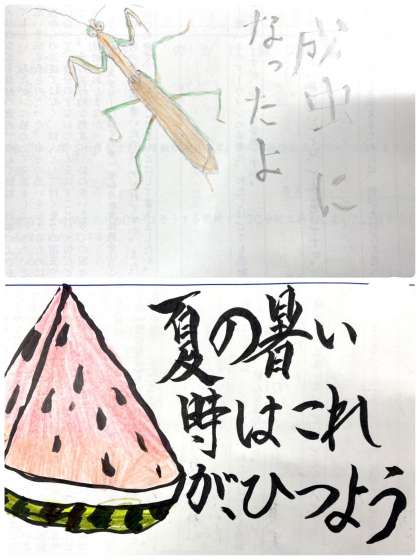 成虫に
なったよ
夏の暑い
時はこれ
が、ひつよう